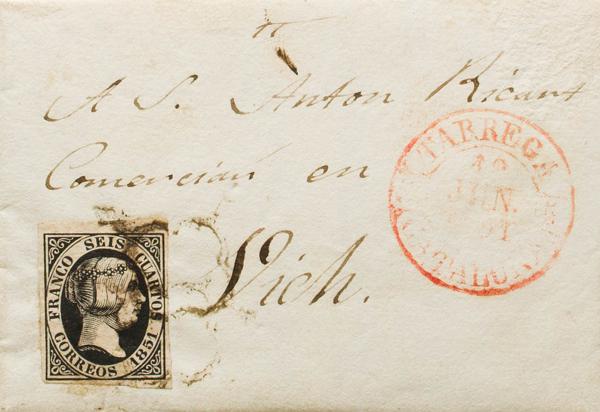 A S. Anton Ricart
Comercian en
Vich.
TARREGA
JUN.
CATALUÑA
FRANCO SEIS CUARTOS
CORREOS 1851